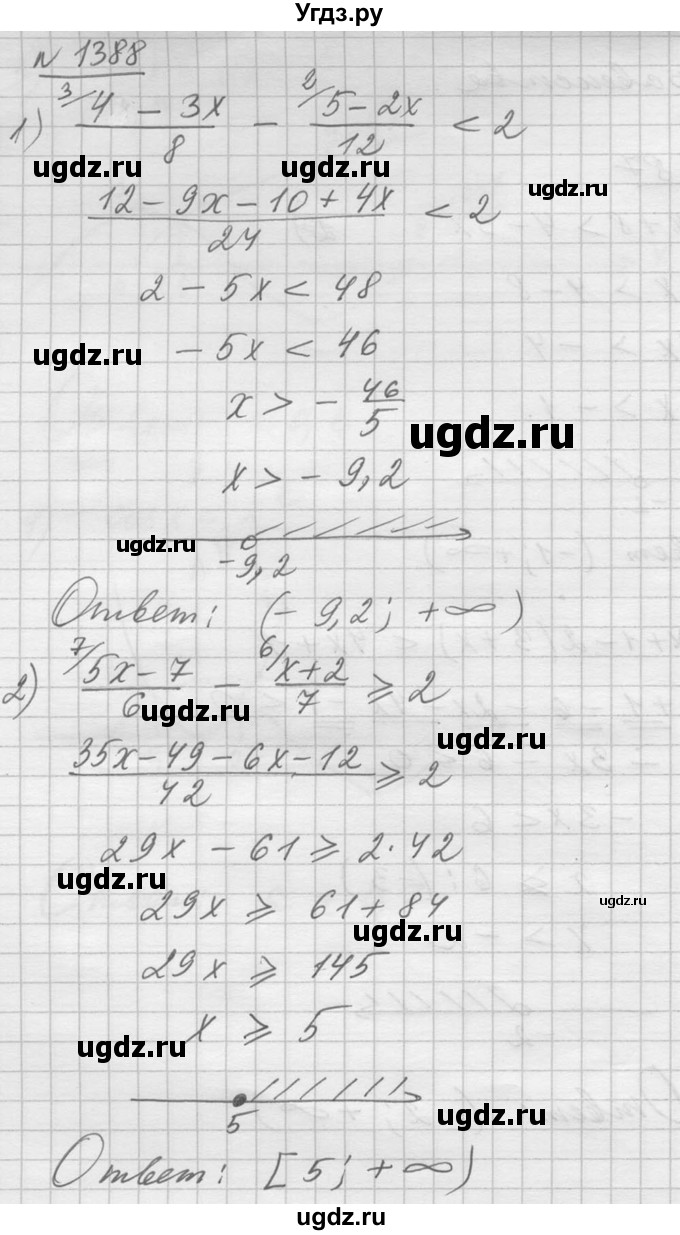 Угдз.ру
№ 1388
1) ³/ (4 - 3x)/8 - ²/ (5 - 2x)/12 < 2
ugdz.ru ugdz.ru ugdz.ru
(12 - 9x - 10 + 4x)/24 < 2
2 - 5x < 48
ugdz.ru - 5x < 46
x > - 46/5
ugdz.ru
x > - 9,2
ugdz.ru
-9,2
Ответ: (- 9,2; +∞)
2) ⁷/ (5x - 7)/6 - ⁶/ (x + 2)/7 ⩾ 2
ugdz.ru
ugdz.ru
(35x - 49 - 6x - 12)/42 ⩾ 2
29x - 61 ⩾ 2·42
ugdz.ru
29x ⩾ 61 + 84
ugdz.ru
ugdz.ru
29x ⩾ 145
x ⩾ 5
ugdz.ru
5
ugdz.ru
Ответ: [5; +∞)
ugdz.ru